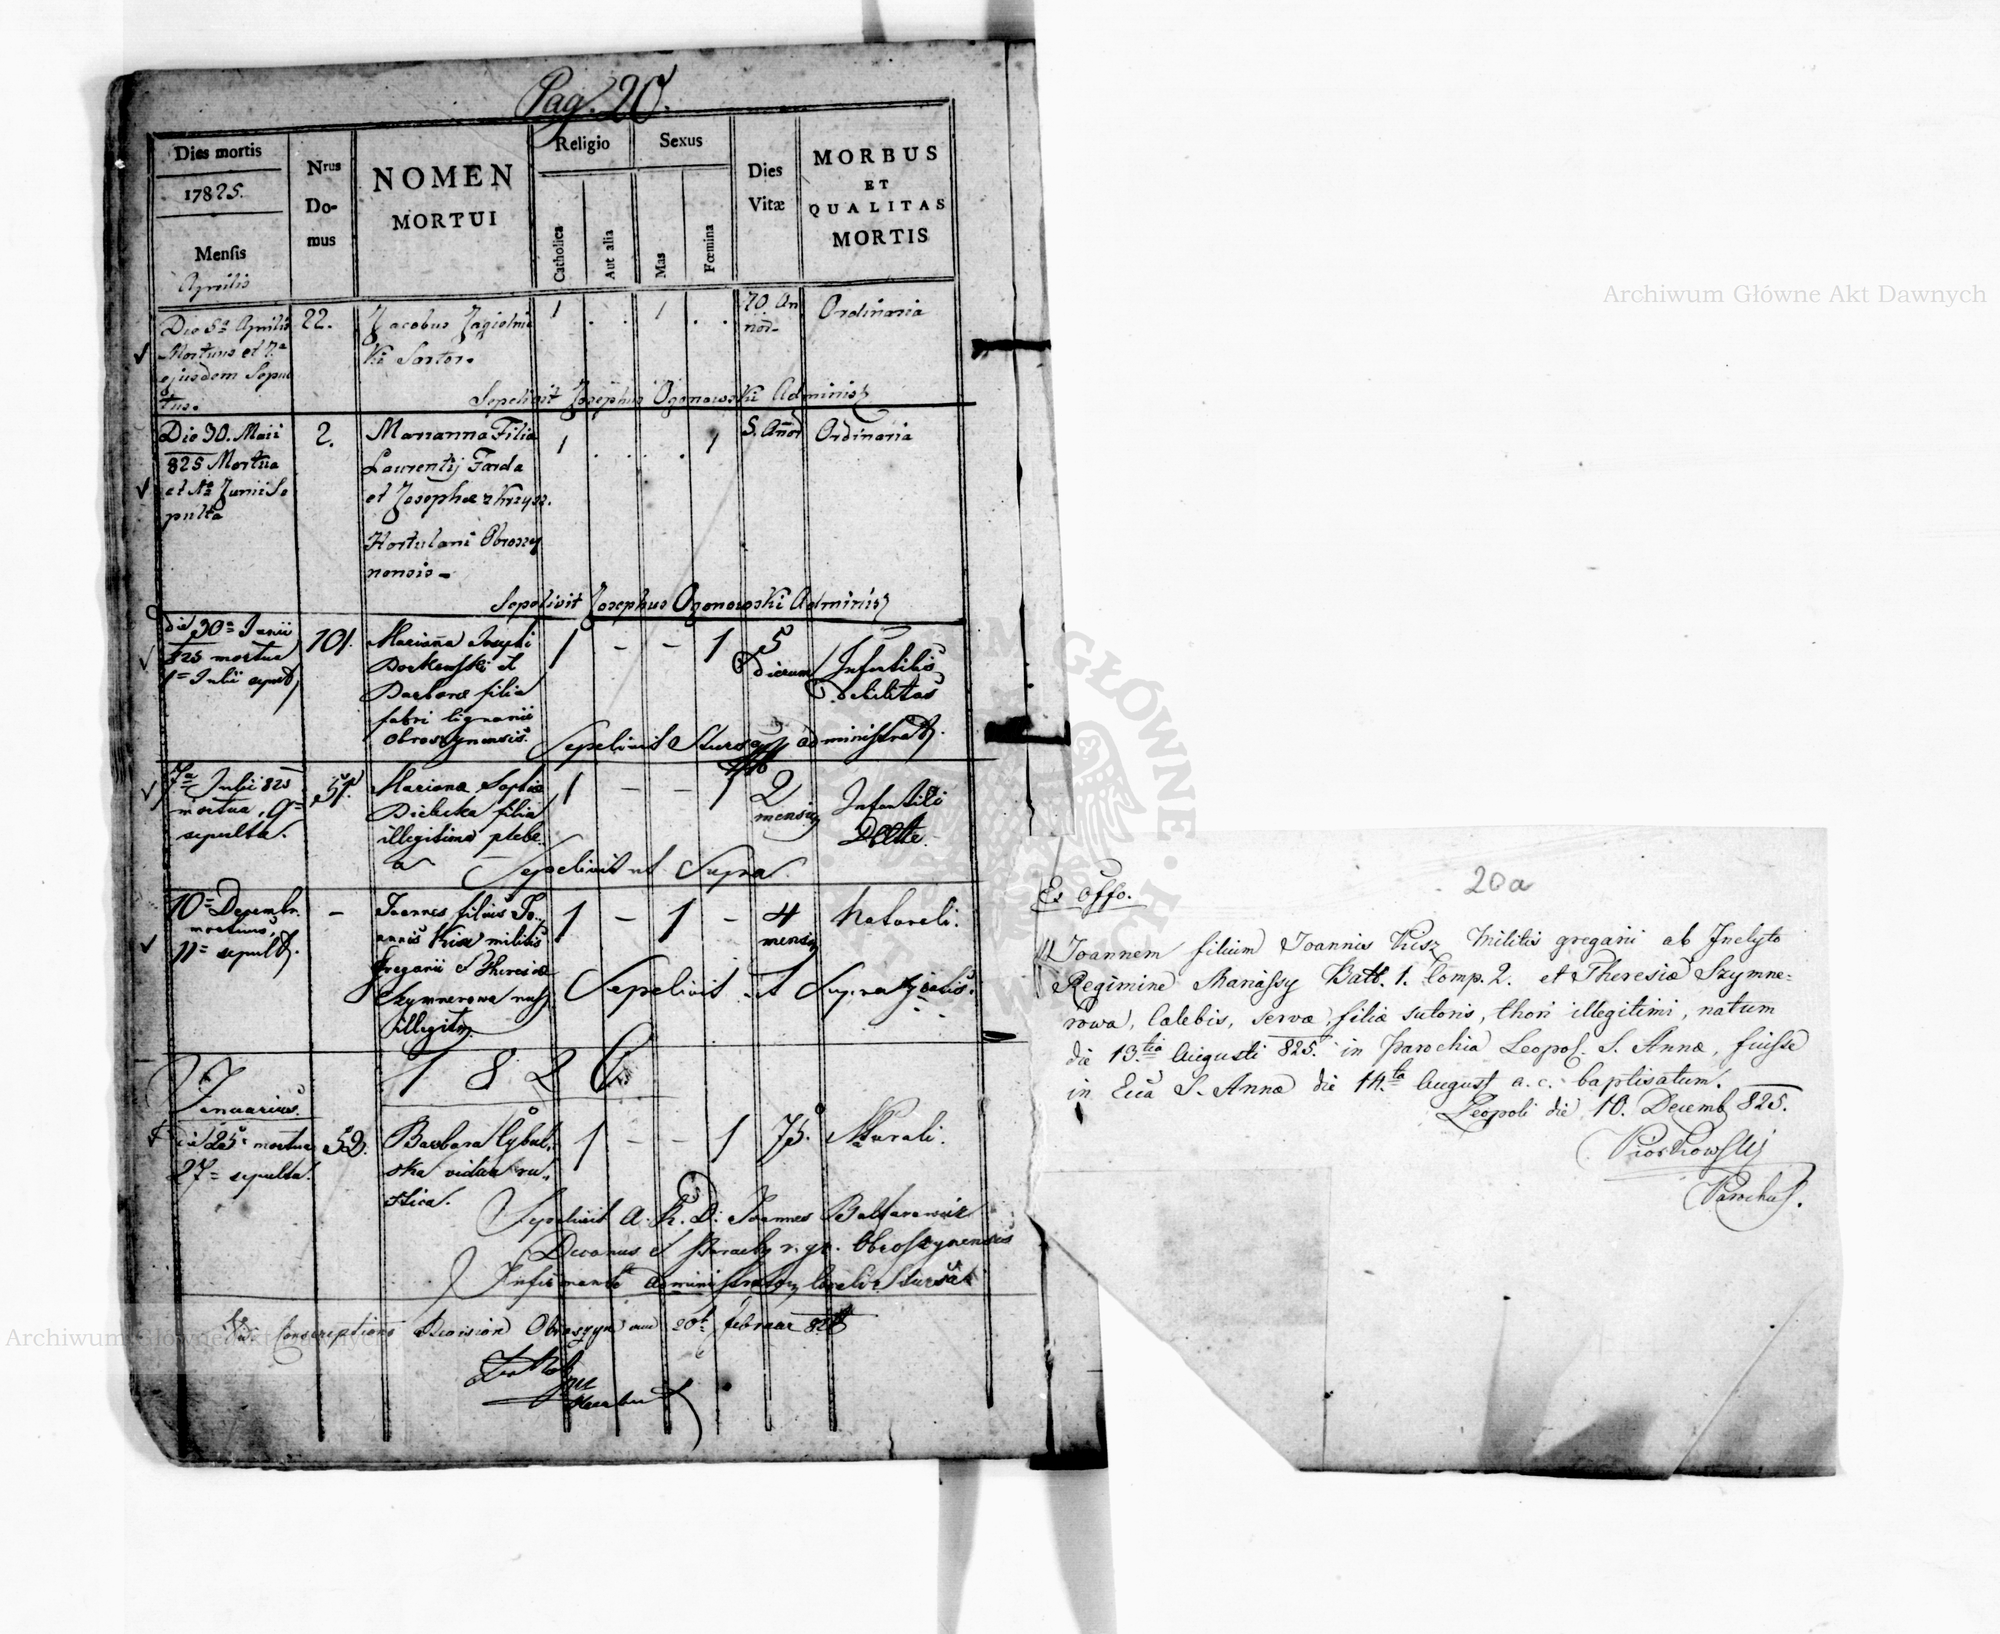 Pag. 20.
Dies mortis
17825.
Mensis
Aprilis
Nrus
Do-
mus
NOMEN
MORTUI
Religio
Catholica
Aut alia
Sexus
Mas
Fœmina
Dies
Vitæ
MORBUS
ET
QUALITAS
MORTIS
Die 5a Aprilis
Mortuus et 7a
ejusdem Sepul
tus.
22.
Jacobus Jagielni
ki Sartor.
1 . 1 .
70. An
nor.
Ordinaria
Sepelivit Josephus Ogonowski Adminis
Die 30. Maii
825 Mortua
et 1a Junii Se
pulta
2.
Marianna Filia
Laurentij Farda
et Josephæ
Hortulani Obroszy
nensis
1 . . 1
5. Annor
Ordinaria
Sepelivit Josephus Ogonowski Adminis
die 30a Junii
825 mortua
1a Julii sepult
101.
Mariaña Josephi
et
Barbaræ filia
fabri lignarii
Obroszynensis.
1 - - 1
5
dierum
Infantilis
debilitas
Sepelivit administrat.
7a Julii 825
mortua, 9a
sepulta.
Marianæ Sophiæ
filia
illegitima plebe
a
1 - - 1
2
mensiu
Infantili
Sepelivit ut Supra.
10a Decembr.
mortuus,
11a sepult.
-
Joannes filius Jo-
annis Kisz militis
gregarii et Theresiæ
Szymnerowa
illegit
1 - 1 -
4
mensiu
Naturali.
Sepelivit ut Supra
1826
Januarius.
Die 25a mortua
27a sepulta.
52.
Barbara Cybul-
ska vidua ru-
stica.
1 - - 1
75.
Naturali.
Sepelivit A. R. D. Joannes
Decanus et r. gr. Obroszynensis
Conscriptions Revision Obroszyn am 20t februar 826
20a
Ex offo.
Joannem filium Joannis Kisz Militis gregarii ab Inclyto
Regimine Mariassy Batt. 1. Comp. 2. et Theresiæ Szymne-
rowa, Cælebis, servæ, filiæ sutoris, thori illegitimi, natum
die 13tia Augusti 825. in Parochia Leopol. S. Annæ, fuisse
in Ecca S. Annæ die 14.ta August a. c. baptisatum.
Leopoli die 10. Decemb 825.
Piotrowski
Parochus.
Archiwum Główne Akt Dawnych
Archiwum Główne Akt Dawnych